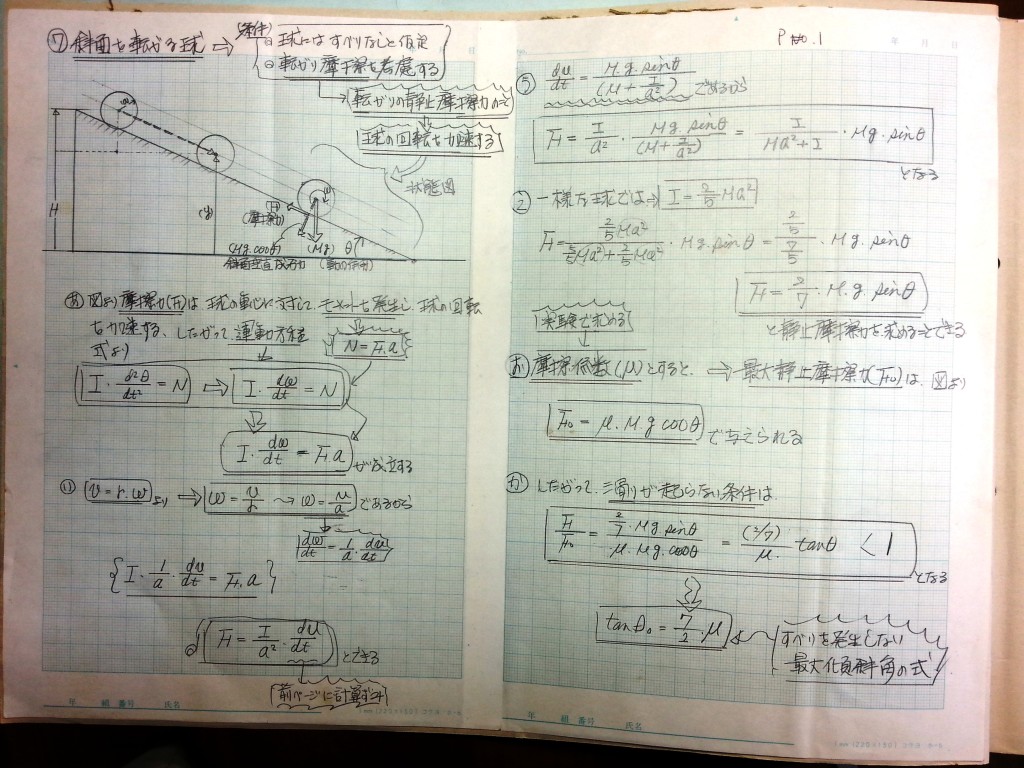 ⑦ 斜面を転がる球 ⇒ (条件)
◎ 球にはすべりなしと仮定
◎ 転がり摩擦を考慮する
→ 転がりの静止摩擦力のこと
球の回転を加速する
状態図
H
(y)
F
(摩擦力)
(Mg.cosθ)
斜面垂直成分力
(Mg)
θ
あ 図より摩擦力(F)は球の重心に対して モーメントを発生し、球の回転
を加速する、したがって 運動方程
式より
N = F.a
I・d²θ/dt² = N ⇒ I・dω/dt = N
I・dω/dt = F.a が成立する
い v = r.ω より ⇒ ω = v/r → ω = v/a であるから
dω/dt = 1/a・dv/dt
{ I・1/a・dv/dt = F.a }
F = I/a²・dv/dt とできる
前ページに計算ずみ
年 組 番号 氏名
P no.1
年 月 日
う dv/dt = M.g.sinθ/(M + I/a²) であるから
F = I/a²・Mg sinθ/(M + I/a²) = I/(Ma² + I)・Mg.sinθ
となる
一様な球では⇒ I = 2/5 Ma²
F = 2/5 Ma²/(5/5 Ma² + 2/5 Ma²)・Mg.sinθ = (2/5)/(7/5)・Mg.sinθ
F = 2/7・M.g.sinθ
と静止摩擦力を求めることできる
実験で求める
お 摩擦係数(μ)とすると、 → 最大静止摩擦力(F₀)は、図より
F₀ = μ.M.g cosθ で与えられる
か したがって、滑りが起らない条件は
F/F₀ = 2/7・Mg sinθ/μ.Mg cosθ = (2/7)/μ. tanθ < 1
となる
tanθ₀ = 7/2・μ
すべりを発生しない
最大傾斜角の式
年 組 番号 氏名